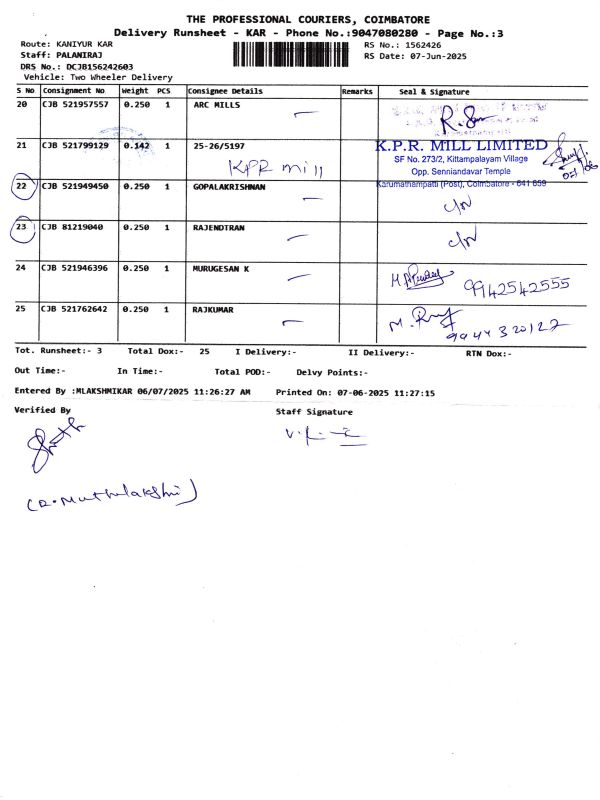 THE PROFESSIONAL COURIERS, COIMBATORE
Delivery Runsheet - KAR - Phone No.:9047080280 - Page No.:3
Route: KANIYUR KAR RS No.: 1562426
Staff: PALANIRAJ RS Date: 07-Jun-2025
DRS No.: DCJB156242603
Vehicle: Two Wheeler Delivery
S No Consignment No Weight PCS Consignee Details Remarks Seal & Signature
20 CJB 521957557 0.250 1 ARC MILLS
21 CJB 521799129 0.142 1 25-26/5197 K.P.R. MILL LIMITED
KPR mill SF No. 273/2, Kittampalayam Village
Opp. Senniandavar Temple
Karumathampatti (Post), Coimbatore - 641 659
22 CJB 521949450 0.250 1 GOPALAKRISHNAN
23 CJB 81219040 0.250 1 RAJENDTRAN
24 CJB 521946396 0.250 1 MURUGESAN K 9942542555
25 CJB 521762642 0.250 1 RAJKUMAR
Tot. Runsheet:- 3 Total Dox:- 25 I Delivery:- II Delivery:- RTN Dox:-
Out Time:- In Time:- Total POD:- Delvy Points:-
Entered By :MLAKSHMIKAR 06/07/2025 11:26:27 AM Printed On: 07-06-2025 11:27:15
Verified By Staff Signature
(R. Muthulakshmi)